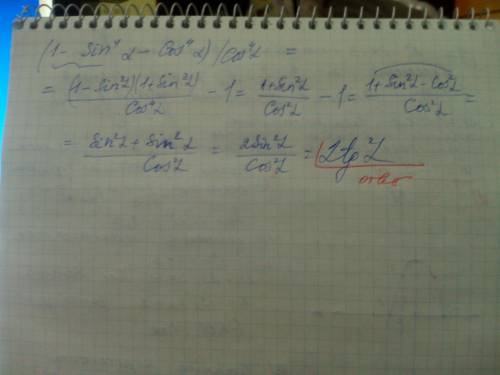 (1 - Sin⁴α - Cos⁴α) / Cos⁴α =
= (1 - Sin²α)(1 + Sin²α) / Cos⁴α - 1 = 1 + Sin²α / Cos²α - 1 = 1 + Sin²α - Cos²α / Cos²α =
= Sin²α + Sin²α / Cos²α = 2Sin²α / Cos²α = 2tg²α